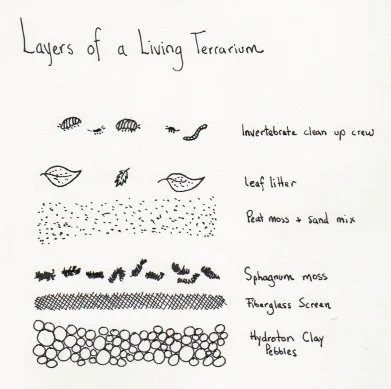 Layers of a Living Terrarium
Invertebrate clean up crew
Leaf litter
Peat moss + sand mix
Sphagnum moss
Fiberglass Screen
Hydroton Clay
Pebbles